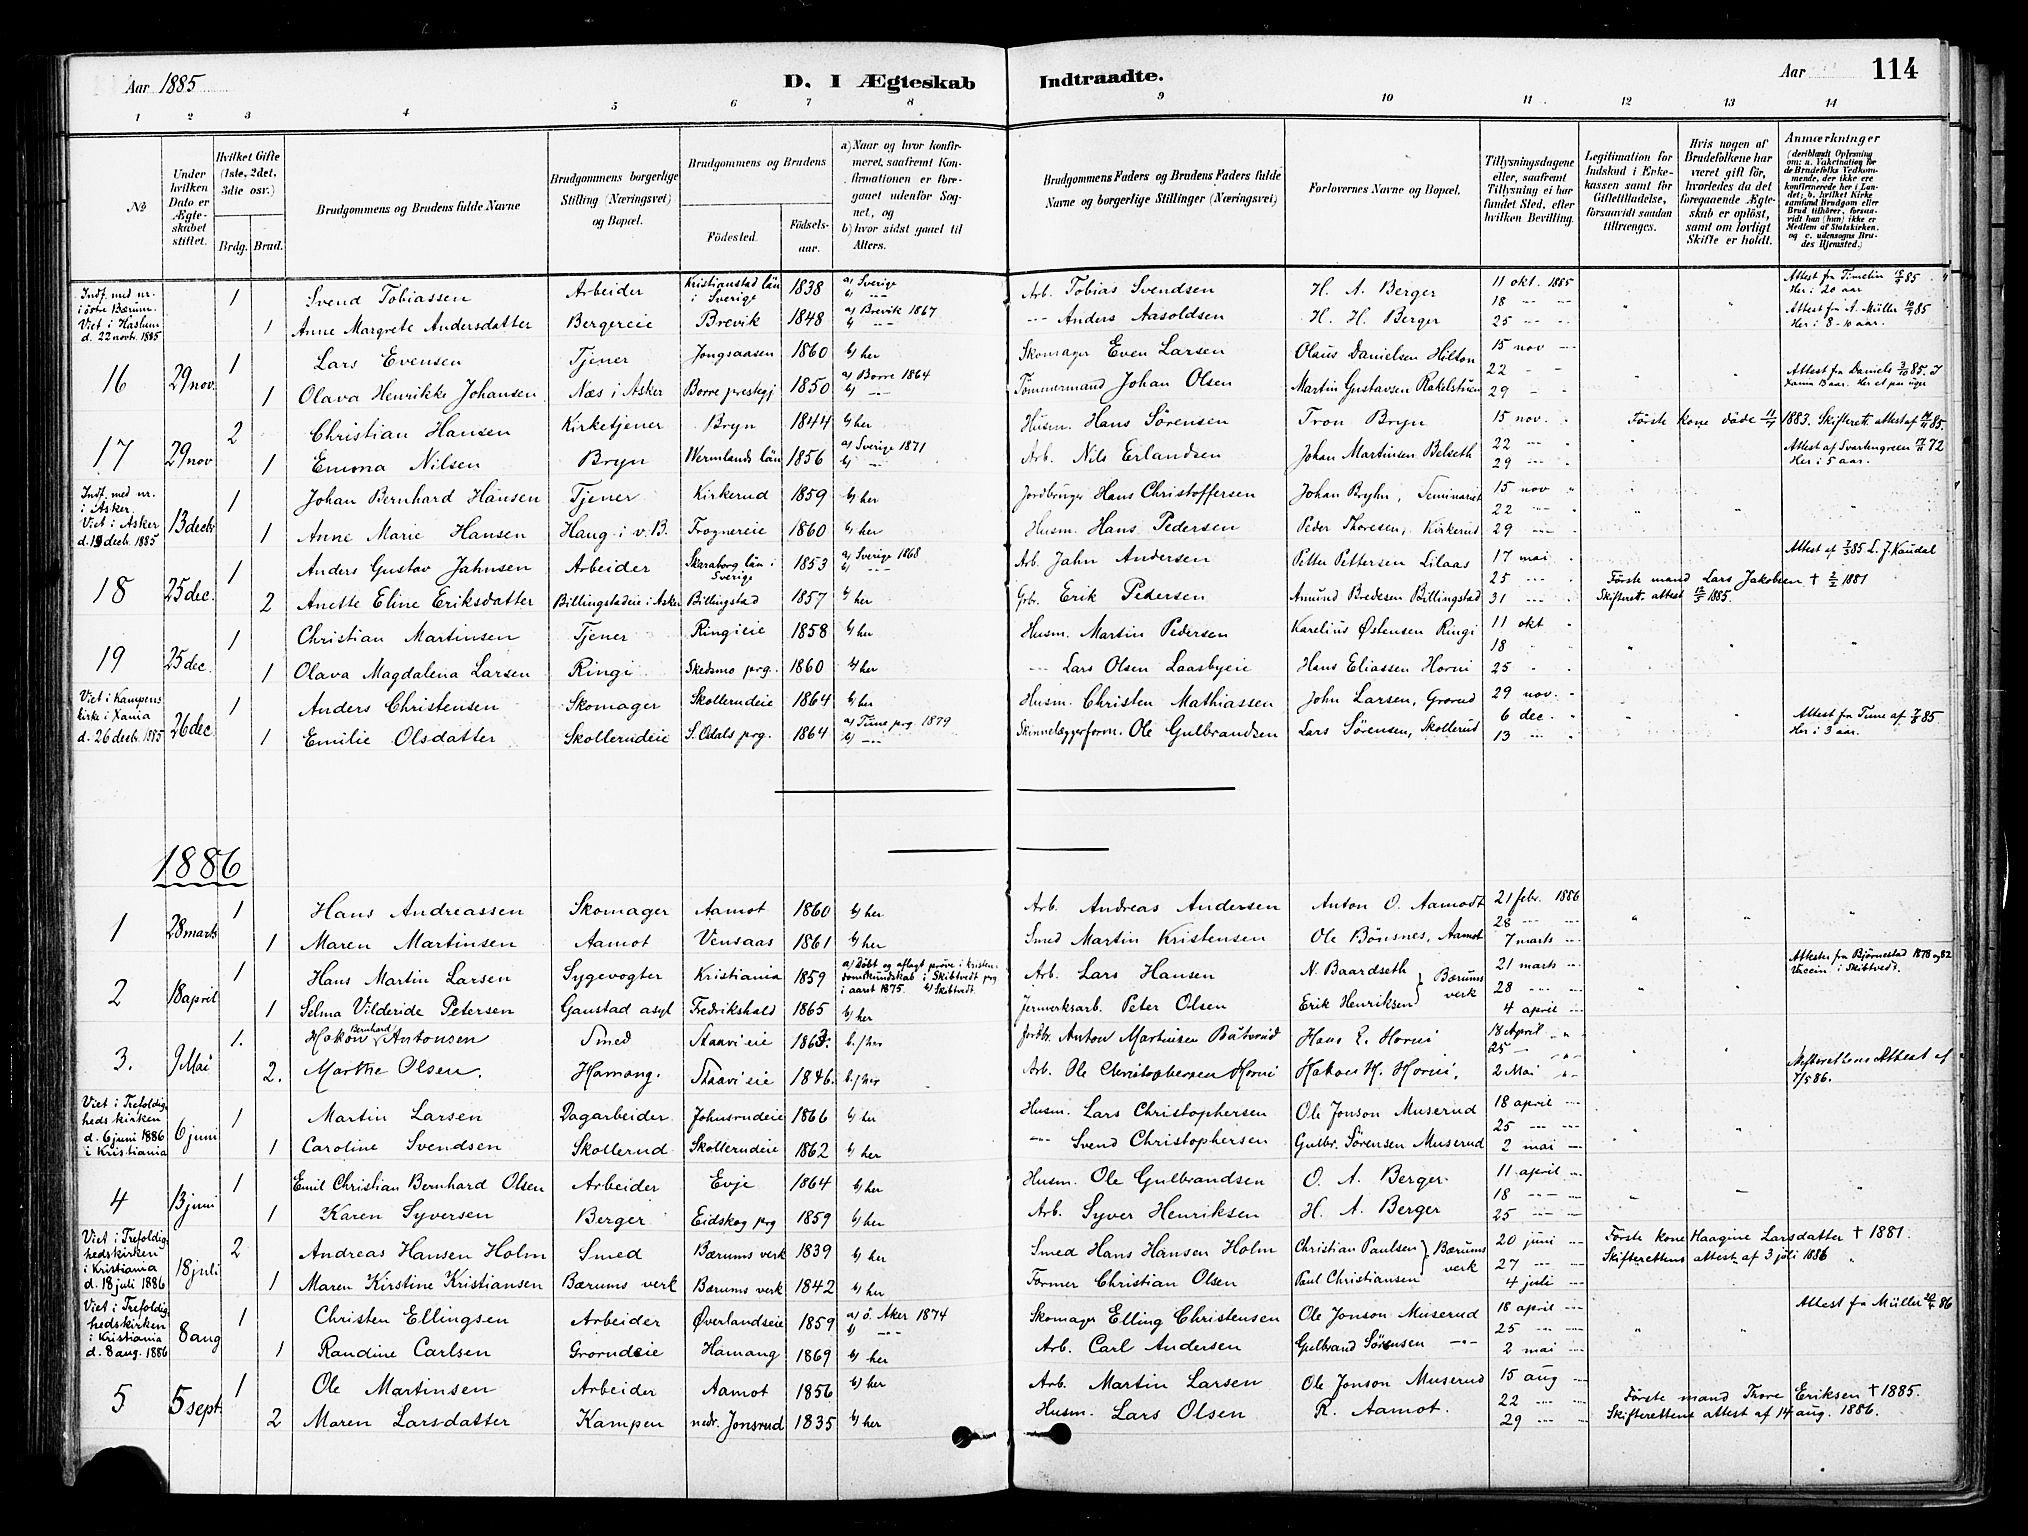 Aar 1885
D. I Ægteskab Indtraadte.
Aar
114
1 2 3 4 5 6 7 8 9 10 11 12 13 14
№
Under hvilken Dato er Ægteskabet stiftet.
Hvilket Gifte (1ste, 2det, 3die osr.)
Brdg. Brud.
Brudgommens og Brudens fulde Navne
Brudgommens borgerlige Stilling (Næringsvei) og Bopæl.
Brudgommens og Brudens
Fødested. Fødsels-aar.
a) Naar og hvor konfirmeret, saafremt Konfirmationen er foregaaet udenfor Sognet, og
b) hvor sidst gaaet til Alters.
Brudgommens Faders og Brudens Faders fulde Navne og borgerlige Stillinger (Næringsvei)
Forlovernes Navne og Bopæl.
Tillysningsdagene eller, saafremt Tillysning ei har fundet Sted, efter hvilken Bevilling.
Legitimation for Indskud i Enkekassen samt for Giftetilladelse, forsaavidt saadan tiltrænges.
Hvis nogen af Brudefolkene har været gift før, hvorledes da det foregaaende Ægteskab er opløst, samt om lovligt Skifte er holdt.
Anmærkninger (deriblandt Oplysning om: a. Vakcination for de Brudefolks Vedkommende, der ikke ere konfirmerede her i Landet; b. hvilket Kirkesamfund Brudgom eller Brud tilhører, forsaavidt han (hun) ikke er Medlem af Statskirken, og c. udensogns Brudes Hjemsted.)
Indf. med nr. i östre Bærum. Viet i Haslum d. 22 novb. 1885
1 Svend Tobiassen Arbeider Kristianstad län i Sverige 1838 a) Sverige b) -- Arb. Tobias Svendsen H. A. Berger 11 okt. 1885 Attest fra Timelin 85. Her i 20 aar
18 -- --
1 Anne Margrete Andersdatter Bergereie Brevik 1848 a) Brevik 1867 b) -- -- Anders Aasoldsen H. H. Berger 25 -- -- Attest fra A. Müller 85 Her i 8-10 aar.
16 29 nov. 1 Lars Evensen Tjener Jongsaasen 1860 b) her Skomager Even Larsen Olaus Danielsen Hilton 15 nov --
22 -
1 Olava Henrikke Johansen Næs i Asker Borre prestegj 1850 a) Borre 1864 b) -- Tömmermand Johan Olsen Martin Gustavsen Rakelstuen 29 - Attest af Daniels 85. I Xania 3 aar. Her et par uge
17 29 nov 2 Christian Hansen Kirketjener Bryn 1844 b) her Husm. Hans Sörensen Tron Bryn 15 nov. Förste kone döde 11/4 1883. Skifterett. attest af 85.
22 --
1 Emma Nilsen Bryn Wermlands län 1856 a) Sverige 1871 b) -- Arb. Nils Erlandsen Johan Martinsen Belseth 29 -- Attest af Svartengreen 72 Her i 5 aar.
Indf. med nr. i Asker. Viet i Asker d. 13 decb. 1885
13 decb 1 Johan Bernhard Hansen Tjener Kirkerud 1859 b) her Jordbruger Hans Christoffersen Johan Bryhn, Seminarist 15 nov
22 --
1 Anne Marie Hansen Haug i v. B. Frognereie 1860 b) her Husm. Hans Pedersen Peder Thoresen, Kirkerud 29 --
18 25 dec. 1 Anders Gustav Jahnsen Arbeider Skaraborg län i Sverige 1853 a) Sverige 1868 b) -- Arb. Jahn Andersen Petter Pettersen Lilaas 17 mai Attest af 85 L. J. Kaudal
25 -- Förste mand Lars Jakobsen † 2/2 1881
2 Anette Eline Eriksdatter Billingstadeie i Asker Billingstad 1857 b) her Grb. Erik Pedersen Amund Bredesen Billingstad 31 -- Skifterett. attest 1885.
19 25 dec. 1 Christian Martinsen Tjener Ringieie 1858 b) her Husm. Martin Pedersen Karelius Østensen Ringi 11 okt
18
1 Olava Magdalena Larsen Ringi Skedsmo prg. 1860 b) her -- Lars Olsen Laasbyeie Hans Eliassen Horni 25
Viet i Kampens kirke i Xania d. 26 decb. 1885
26 dec 1 Anders Christensen Skomager Skollerudeie 1864 b) her Husm. Christen Mathiassen John Larsen, Grorud 29 nov.
6 dec.
1 Emilie Olsdatter Skollerudeie S. Odals prg. 1864 a) Tune prg. 1879 b) -- Skinnelæggerform. Ole Gulbrandsen Lars Sörensen, Skollerud 13 -- Attest fra Tune af 85. Her i 3 aar.
1886
1 28 marts 1 Hans Andreassen Skomager Aamot 1860 b) her Arb. Andreas Andersen Anton O. Aamodt 21 febr. 1886
28 -- --
1 Maren Martinsen Aamot Vensaas 1861 b) her Smed Martin Kristensen Ole Bönsnes, Aamot 7 marts --
2 18 april 1 Hans Martin Larsen Sygevogter Kristiania 1859 a) Döbt og aflagt pröve i kristendomskundskab i Skibtvedt prg i aaret 1875. b) Skibtvedt. Arb. Lars Hansen N. Baardseth } Bærums verk 21 marts -- Attester fra Björnestad 1878 og 82 Vaccin. i Skibtvedt.
28 -- --
1 Selma Vilderide Petersen Gaustad asyl Fredrikshald 1865 b) her Jernverksarb. Peter Olsen Erik Henriksen 4 april --
3. 9 Mai 1. Hakon Bernhard Antonsen Smed Staavieie 1863. b.) her Jordbr. Anton Martinsen Båtvrud Hans E. Horni 18 April
25 -
2. Marthe Olsen. Hamang. Staavieie 1846. b.) her Arb. Ole Christophersen Horni Hakon H. Horni, 2 Mai Skifterettens Attest af 7/5 86.
Viet i Trefoldighedskirken d. 6 juni 1886 i Kristiania
6 juni 1 Martin Larsen Dagarbeider Johnsrudeie 1866 b) her Husm. Lars Christophersen Ole Jonson Muserud 18 april --
25 -- --
1 Caroline Svendsen Skollerud Skollerudeie 1862 b) her -- Svend Christophersen Gulbr. Sörensen Muserud 2 mai --
4 13 juni 1 Emil Christian Bernhard Olsen Arbeider Evje 1864 b) her Husm. Ole Gulbrandsen O. A. Berger 11 april --
18 -- --
1 Karen Syversen Berger Eidskog prg 1859 b) her Arb. Syver Henriksen H. A. Berger 25 -- --
Viet i Trefoldighedskirken i Kristiania d. 18 juli 1886
18 juli 2 Andreas Hansen Holm Smed Bærums verk 1839 b) her Smed Hans Hansen Holm Christian Paulsen } Bærums verk 20 juni -- Förste kone Haagine Larsdatter † 1881.
27 -- -- Skifterettens attest af 3 juli 1886
1 Maren Kirstine Kristiansen Bærums verk Bærums verk 1842 b) her Former Christian Olsen Paul Christiansen 4 juli --
Viet i Trefoldighedskirken i Kristiania d. 8 aug. 1886
8 aug 1 Christen Ellingsen Arbeider Øverlandseie 1859 a) ö. Aker 1874 b) -- Skomager Elling Christensen Ole Jonson Muserud 18 april -- Attest fra Müller 86
25 -- --
1 Randine Carlsen Grorudeie Hamang 1869 b) her Arb. Carl Andersen Gulbrand Sörensen -- 2 mai --
5 5 sept. 1 Ole Martinsen Arbeider Aamot 1856 b) her Arb. Martin Larsen Ole Jonson Muserud 15 aug --
22 -- -- Förste mand Thore Eriksen † 1885.
2 Maren Larsdatter Kampen nedr. Jonsrud 1835 b) her Husm. Lars Olsen R. Aamot. 29 -- -- Skifterettens attest af 14 aug. 1886.